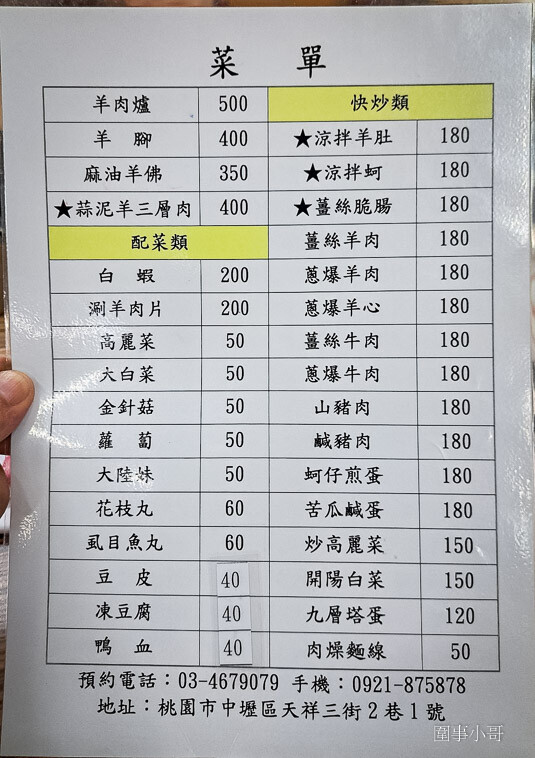 菜 單
羊肉爐 500
羊 腳 400
麻油羊佛 350
★蒜泥羊三層肉 400
配菜類
白 蝦 200
涮羊肉片 200
高麗菜 50
大白菜 50
金針菇 50
蘿 蔔 50
大陸妹 50
花枝丸 60
虱目魚丸 60
豆 皮 40
凍豆腐 40
鴨 血 40
快炒類
★涼拌羊肚 180
★涼拌蚵 180
★薑絲脆腸 180
薑絲羊肉 180
蔥爆羊肉 180
蔥爆羊心 180
薑絲牛肉 180
蔥爆牛肉 180
山豬肉 180
鹹豬肉 180
蚵仔煎蛋 180
苦瓜鹹蛋 180
炒高麗菜 150
開陽白菜 150
九層塔蛋 120
肉燥麵線 50
預約電話：03-4679079 手機：0921-875878
地址：桃園市中壢區天祥三街2巷1號
圍事小哥